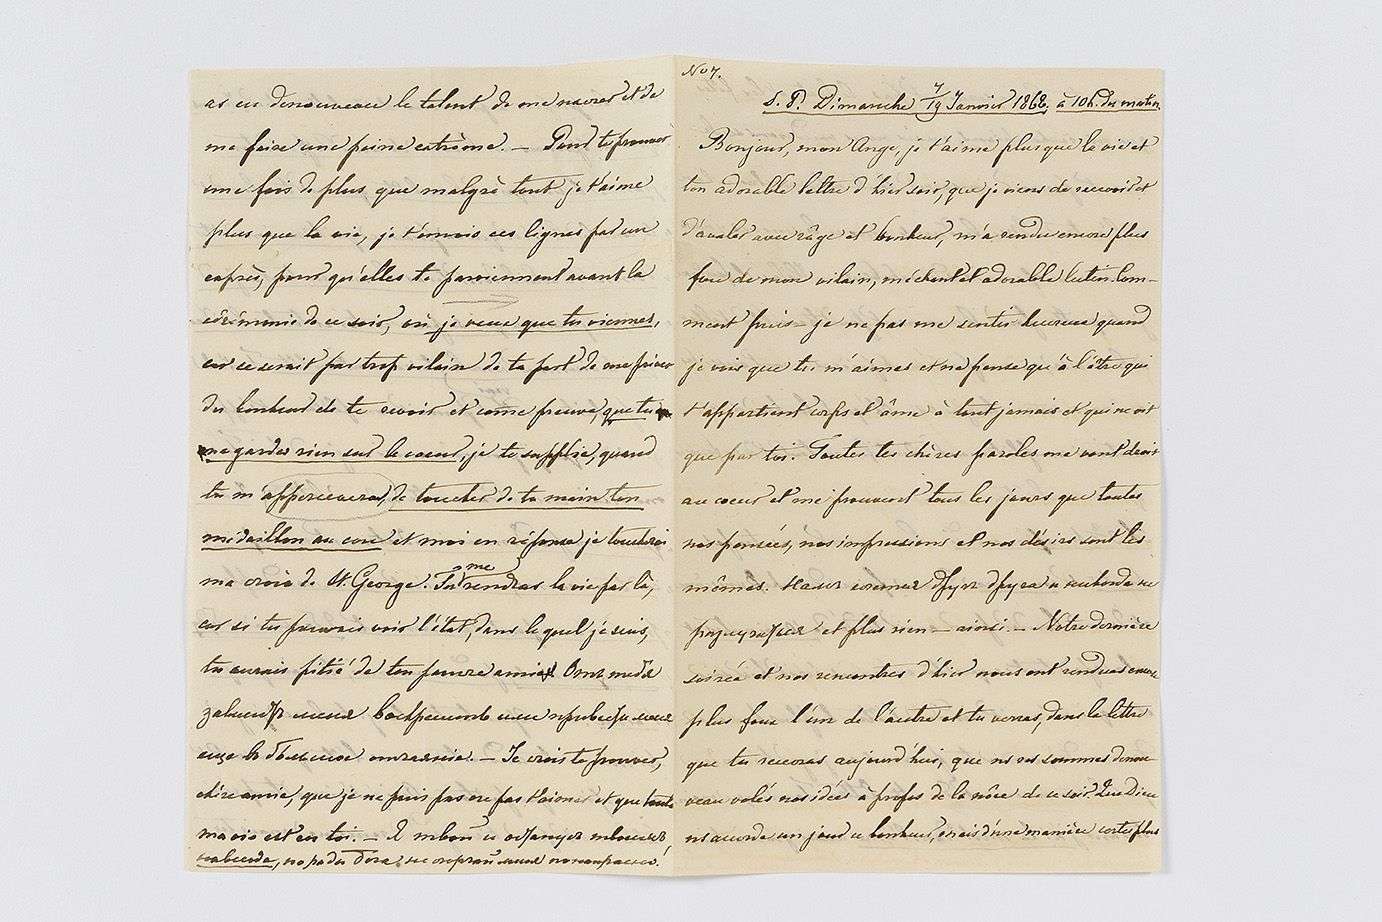 as eu denouveau le talent de me navrer et de
me faire une peine extrème. — Pour te prouver
une fois de plus que malgrè tout je t'aime
plus que la vie, je t'envoie ces lignes par un
exprès, pour qu'elles te parviennent avant la
cérémonie de ce soir, où je veux que tu viennes,
car ce serait par trop vilain de ta part de me priver
du bonheur de te revoir et comme preuve, que tu
ne gardes rien sur le coeur, je te supplie, quand
tu m'appercevras, de toucher de ta main ton
médaillon au cou et moi en réponse je toucherai
ma croix de St. George. Tu me rendras la vie par là,
car si tu pouvais voir l'état, dans lequel je suis,
tu aurais pitié de ton pauvre ami. Отъ тебя
зависитъ меня воскресить или привести меня
еще въ большое отчаяніе. — Je crois te prouver,
chère amie, que je ne puis pas ne pas t'aimer et que toute
ma vie est en toi. —
навсегда, но ради Бога, не
No 7.
S. P. Dimanche 7/19 Janvier 1868. à 10 h. du matin.
Bonjour, mon Ange, je t'aime plus que la vie et
ton adorable lettre d'hier soir, que je viens de recevoir et
d'avaler avec râge et bonheur, m'a rendu encore plus
fou de mon vilain, méchant et adorable lutin. Com-
ment puis-je ne pas me sentir heureux quand
je vois que tu m'aimes et ne pense qu'à l'être qui
t'appartient corps et âme à tout jamais et qui ne vit
que par toi. Toutes tes chères paroles me vont droit
au coeur et me prouvent tous les jours que toutes
nos pensées, nos impressions et nos désirs sont les
mêmes. Насъ Богъ другъ друга и навсегда не
et plus rien — ainsi. — Notre dernière
soirée et nos rencontres d'hier nous ont rendus encore
plus fous l'un de l'autre et tu verras, dans la lettre
que tu recevras aujourd'hui, que ns ns sommes denou-
veau volés nos idées à propos de la nôce de ce soir. Que Dieu
ns accorde un jour ce bonheur, mais d'une manière certes plus